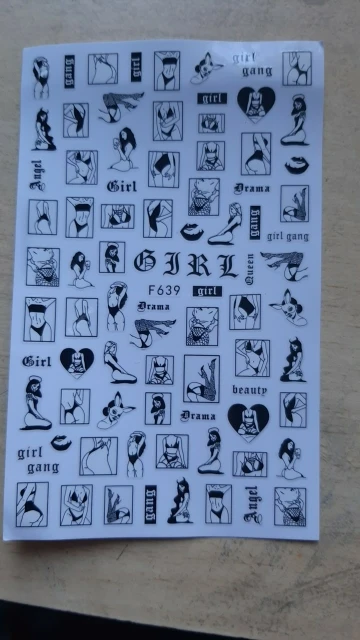 girl
gang
gang
girl
girl
Angel
Girl
Drama
gang
girl gang
GIRL
Queen
F639
girl
Drama
Girl
beauty
Drama
girl
gang
gang
Angel